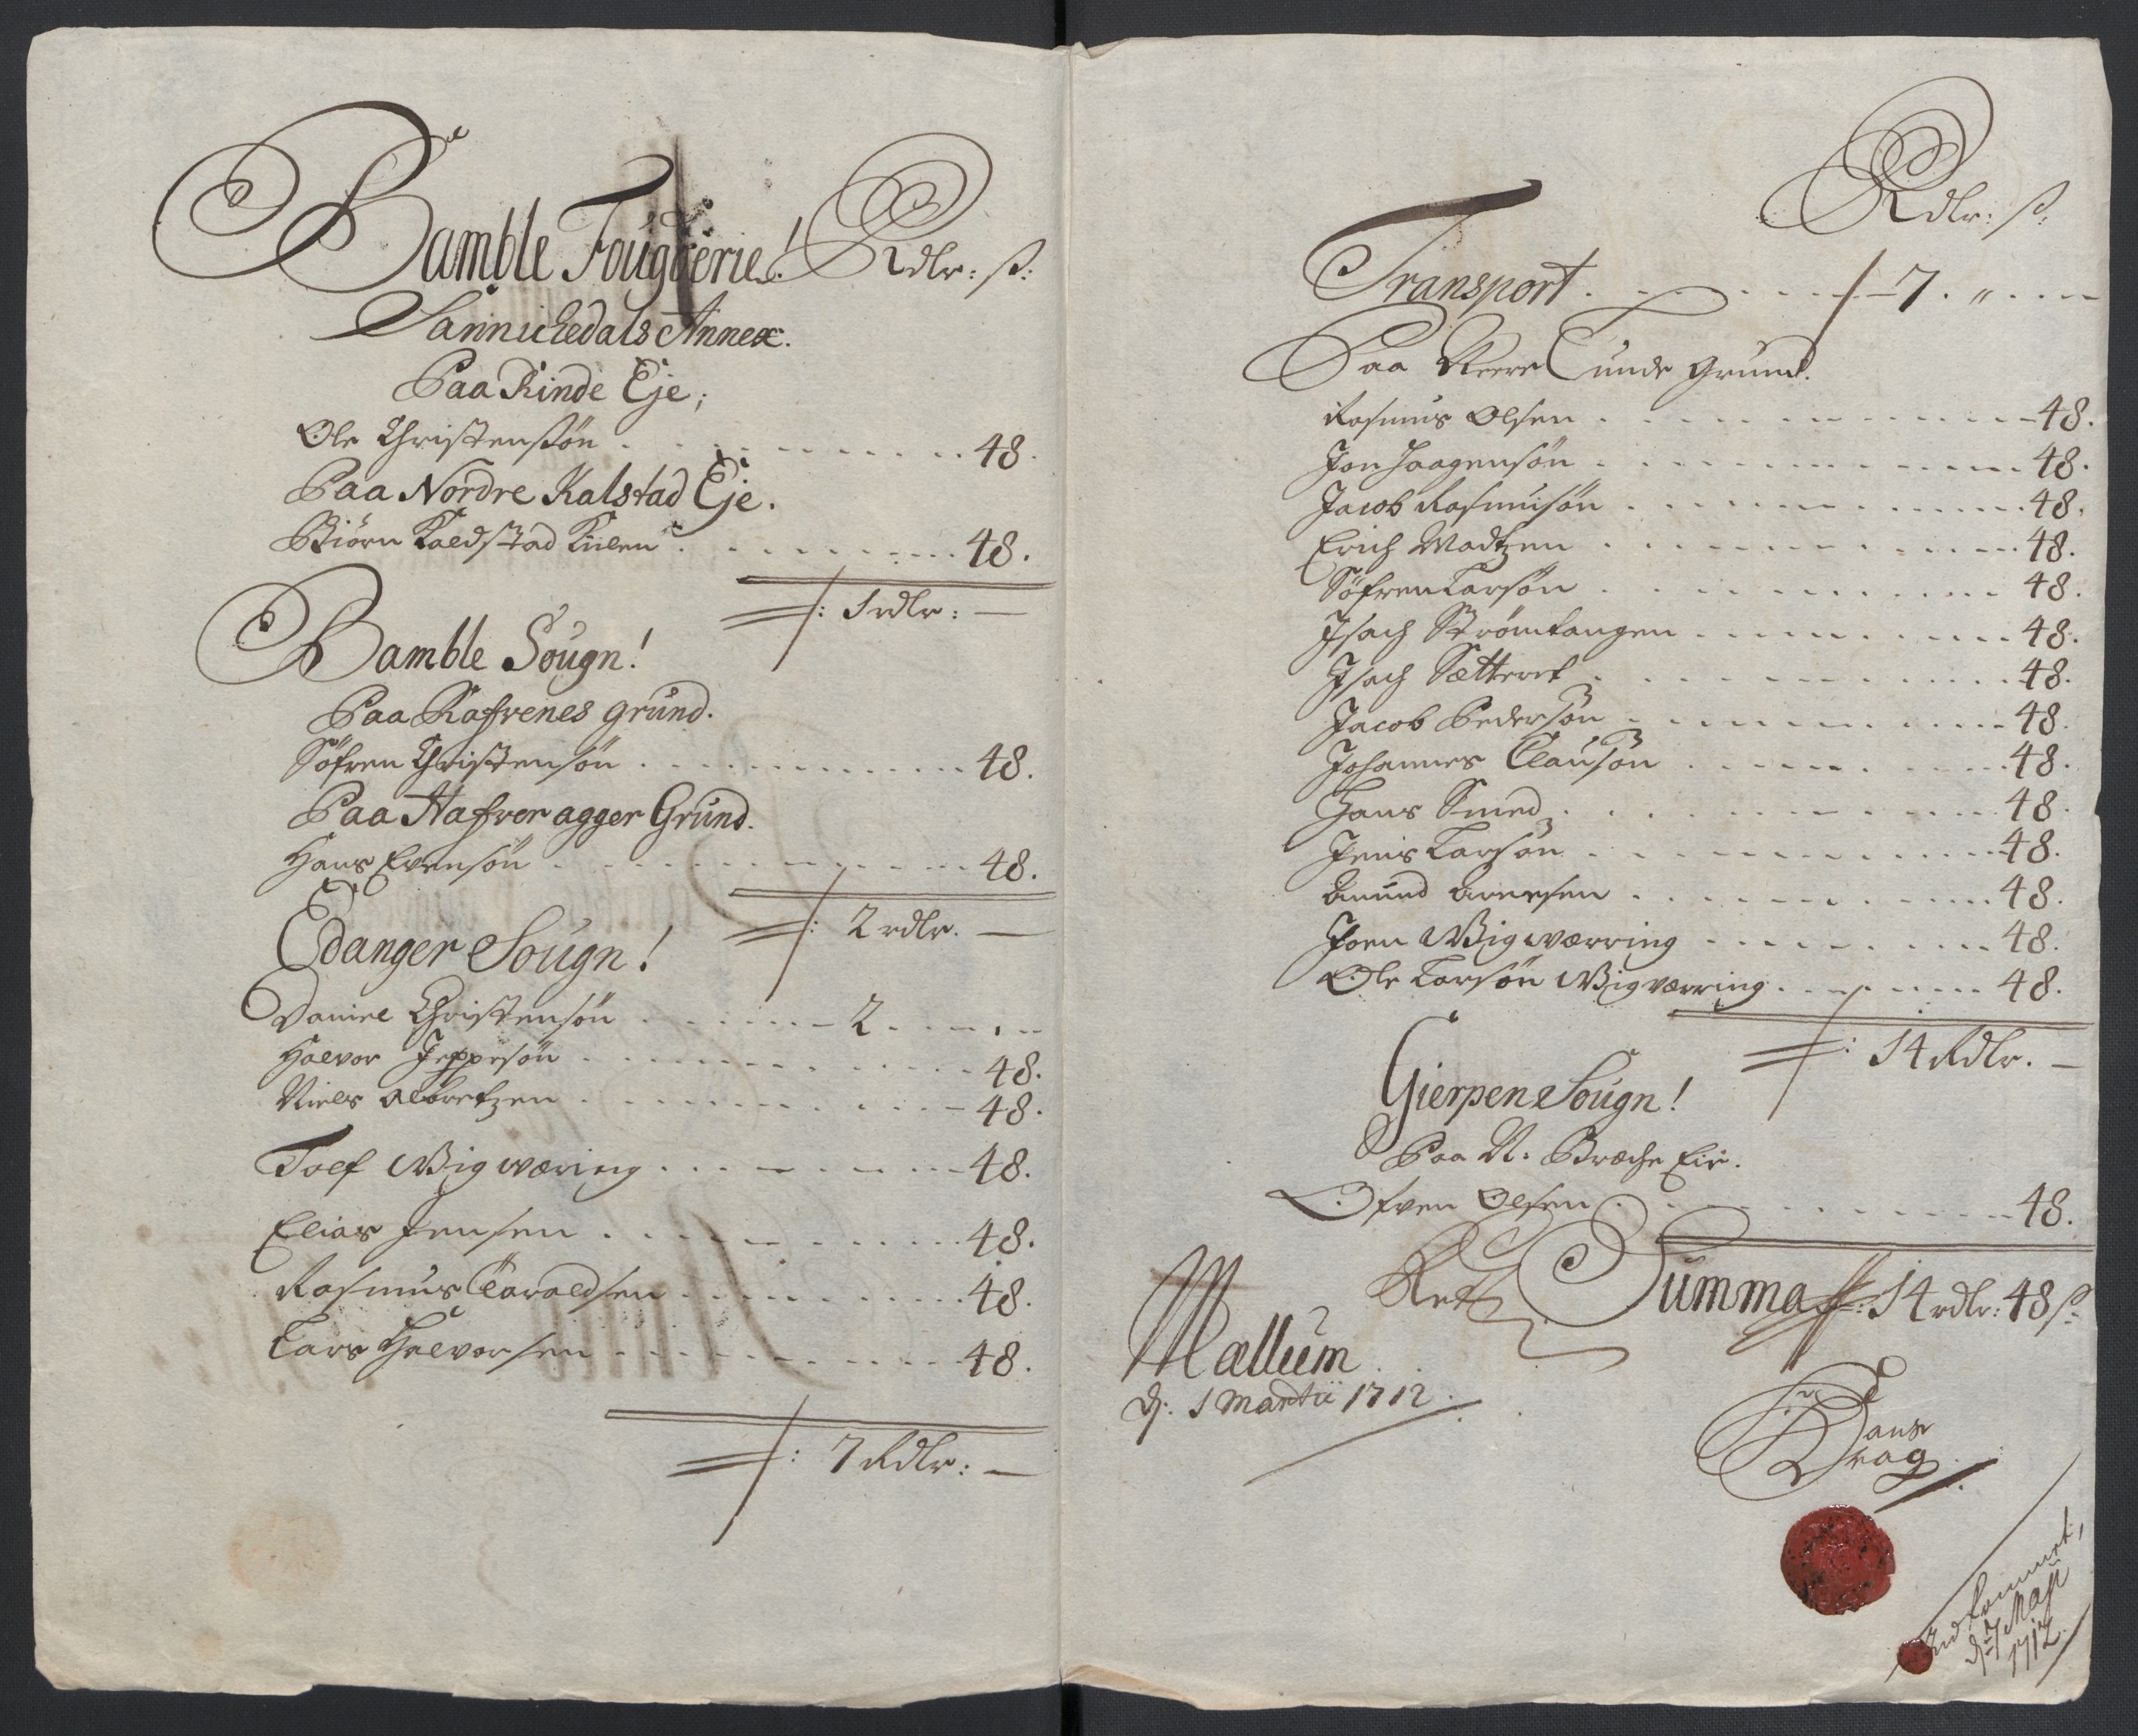 Bamble Fougderie! Rdlr: ß:
Sannichedals Annex.
Paa Rinde Eje;
Ole Christensøn . . . 48.
Paa Nordre Kalstad Eje.
Biörn Kaldstad Kiilen . . . 48.
: 1 rdlr: —
Bamble Sougn!
Paa Rafrenes grund.
Söfren Christensön . . . 48.
Paa Hafrer agger Grund.
Hans Evensön . . . 48.
: 2 rdlr. —
Edanger Sougn!
Daniel Christensön . . . 2 . . .
Halvor Jeppesön . . . 48.
Niels Albretzen . . . 48.
Tolf Wigwæring . . . 48.
Elias Jensen . . . 48.
Rasmus Taraldsen . . . 48.
Lars Halvorsen . . . 48.
: 7 Rdlr: —
Rdlr: ß:
Transport . . . 7 . „ . . .
Paa Neere Lunde grund.
Rasmus Olsen . . . 48.
Jon Haagensön . . . 48.
Jacob Rasmusön . . . 48.
Erich Madtzen . . . 48.
Söfren Larsön . . . 48.
Isach Strömtangen . . . 48.
Isach . . . 48.
Jacob Pedersön . . . 48.
Johannes Clausön . . . 48.
Hans Smed . . . 48.
Jens Larsön . . . 48.
Amund Arnesen . . . 48.
Joen Wigwærring . . . 48.
Ole Larsön Wigværring . . . 48.
: 14 Rdlr. —
Gierpen Sougn!
Paa N. Bræche Eie.
Ofven Olsen . . . 48.
Rett Summa : 14 rdlr: 48 ß:
Mællum
d: 1 Martii 1712.
Hans
Krag
Indkommet,
d: 7 Maji
1712.